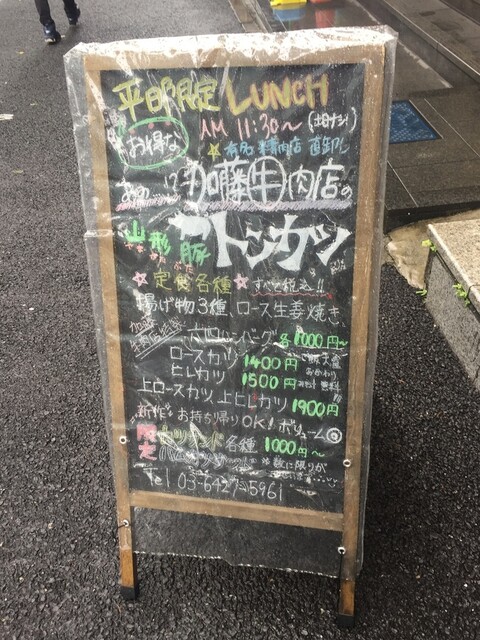 平日限定 LUNCH
お得な AM 11:30～
有名精肉店 直卸し
あの 加藤牛肉店の
山形豚 トンカツ
やまがたぶた
定食各種 すべて税込!!
揚げ物3種、ロース生姜焼き、
バーグ 各1000円～
ロースカツ 1400円
ヒレカツ 1500円 おかわり 無料!!
上ロースカツ 上ヒレカツ 1900円
新作 お持ち帰りOK! ボリューム◎
限定 カツサンド各種 1000円～
数に限りが
Tel 03-6427-5961